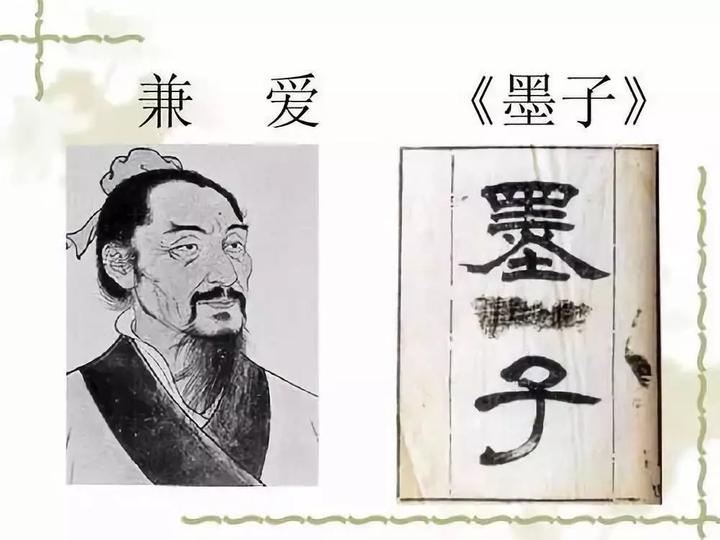 兼 爱 《墨子》
墨
子